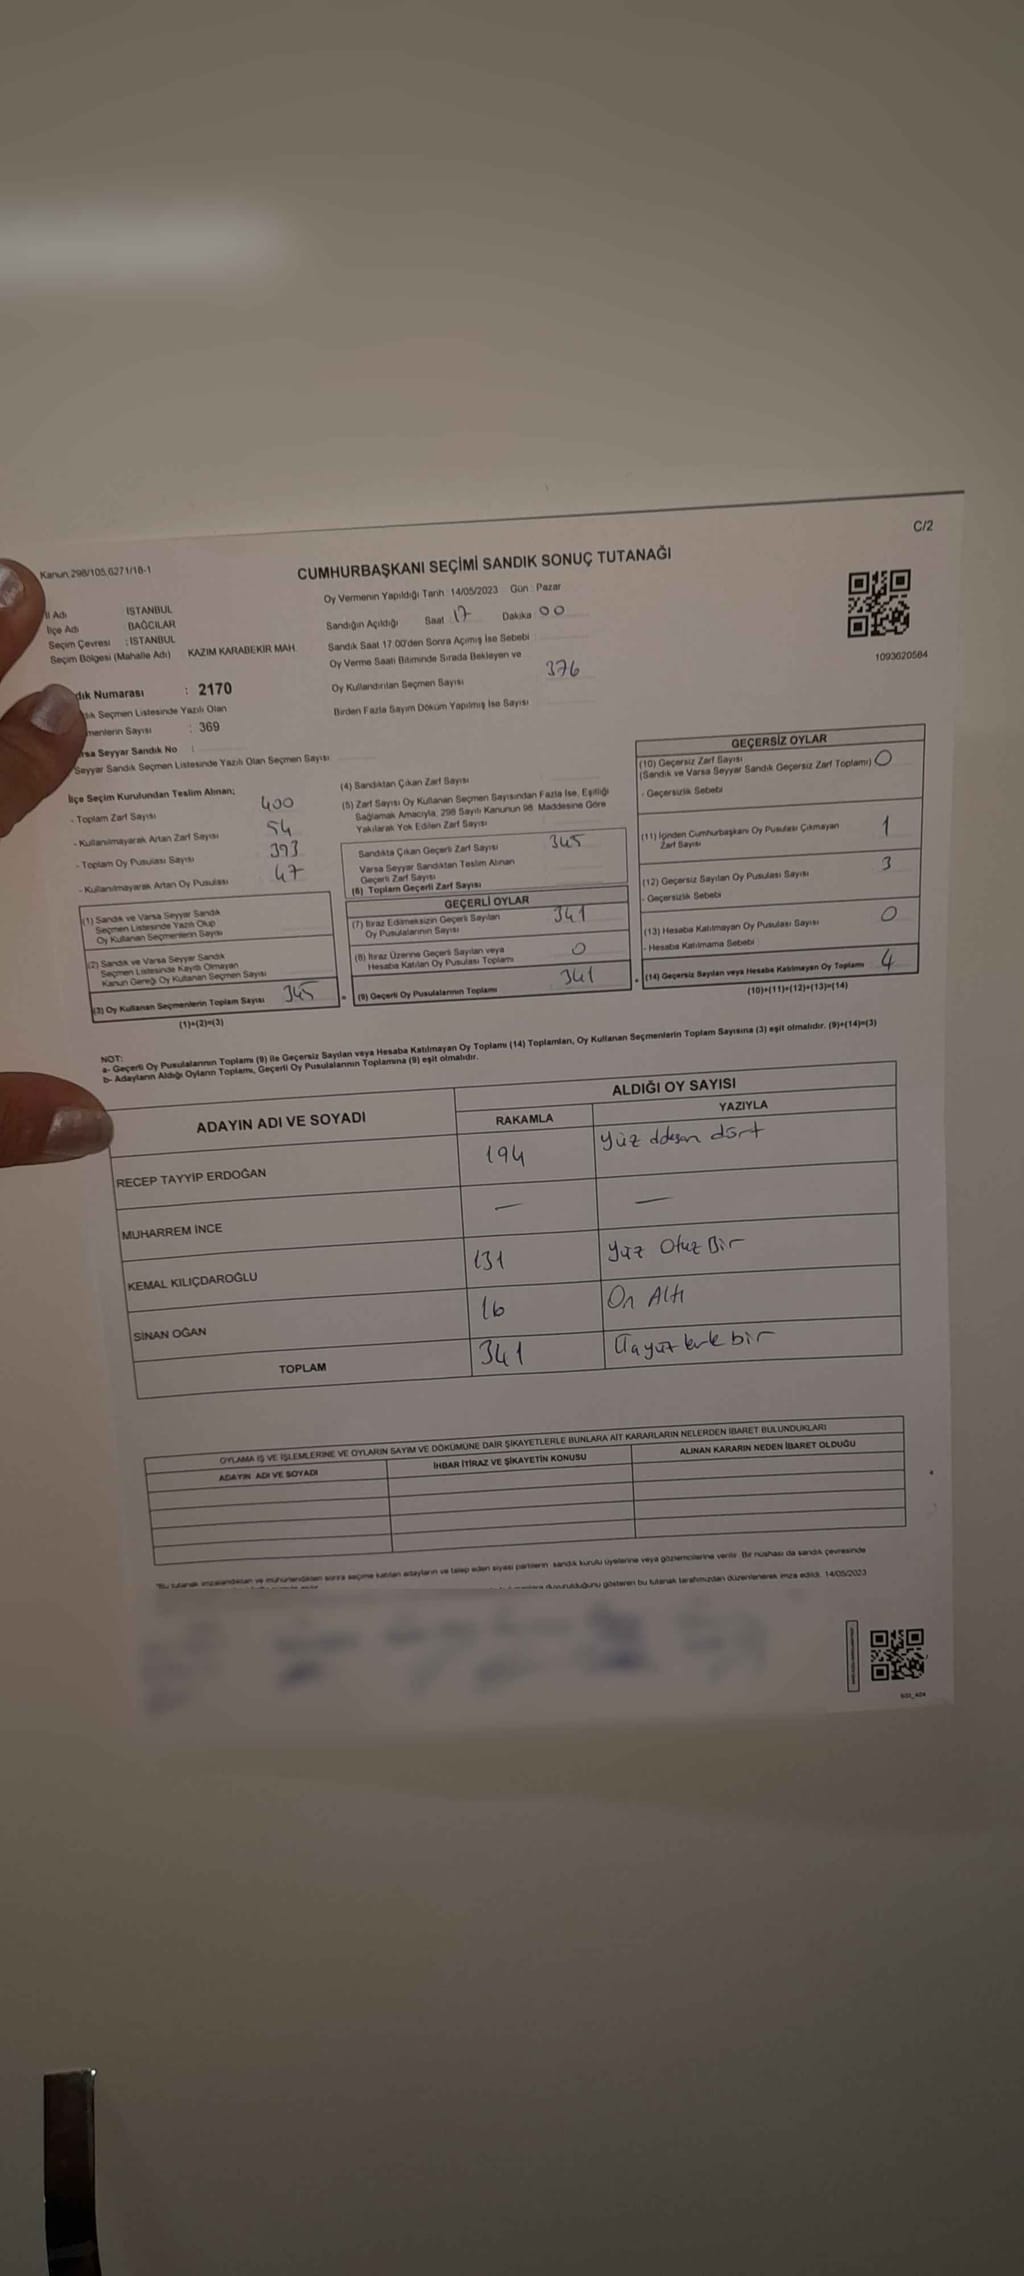 C/2
Kanun:298/105,6271/18-1
CUMHURBAŞKANI SEÇİMİ SANDIK SONUÇ TUTANAĞI
İl Adı İSTANBUL
İlçe Adı BAĞCILAR
Seçim Çevresi : İSTANBUL
Seçim Bölgesi (Mahalle Adı) KAZIM KARABEKİR MAH.
dık Numarası : 2170
Seçmen Listesinde Yazılı Olan
menlerin Sayısı : 369
rsa Seyyar Sandık No :
Seyyar Sandık Seçmen Listesinde Yazılı Olan Seçmen Sayısı
Oy Vermenin Yapıldığı Tarih : 14/05/2023 Gün : Pazar
Sandığın Açıldığı Saat 17 Dakika 00
Sandık Saat 17.00'den Sonra Açılmış İse Sebebi
Oy Verme Saati Bitiminde Sırada Bekleyen ve
Oy Kullandırılan Seçmen Sayısı 376
Birden Fazla Sayım Döküm Yapılmış İse Sayısı
1093620584
İlçe Seçim Kurulundan Teslim Alınan;
- Toplam Zarf Sayısı 400
- Kullanılmayarak Artan Zarf Sayısı 54
- Toplam Oy Pusulası Sayısı 393
- Kullanılmayarak Artan Oy Pusulası 47
(1) Sandık ve Varsa Seyyar Sandık
Seçmen Listesinde Yazılı Olup
Oy Kullanan Seçmenlerin Sayısı
(2) Sandık ve Varsa Seyyar Sandık
Seçmen Listesinde Kayıtlı Olmayan
Kanun Gereği Oy Kullanan Seçmen Sayısı
(3) Oy Kullanan Seçmenlerin Toplam Sayısı 345
(1)+(2)=(3)
(4) Sandıktan Çıkan Zarf Sayısı
(5) Zarf Sayısı Oy Kullanan Seçmen Sayısından Fazla İse, Eşitliği
Sağlamak Amacıyla, 298 Sayılı Kanunun 98. Maddesine Göre
Yakılarak Yok Edilen Zarf Sayısı
Sandıkta Çıkan Geçerli Zarf Sayısı 345
Varsa Seyyar Sandıktan Teslim Alınan
Geçerli Zarf Sayısı
(6) Toplam Geçerli Zarf Sayısı
GEÇERLİ OYLAR
(7) İtiraz Edilmeksizin Geçerli Sayılan
Oy Pusulalarının Sayısı 341
(8) İtiraz Üzerine Geçerli Sayılan veya
Hesaba Katılan Oy Pusulası Toplamı 0
= (9) Geçerli Oy Pusulalarının Toplamı 341
GEÇERSİZ OYLAR
(10) Geçersiz Zarf Sayısı
(Sandık ve Varsa Seyyar Sandık Geçersiz Zarf Toplamı) 0
- Geçersizlik Sebebi
(11) İçinden Cumhurbaşkanı Oy Pusulası Çıkmayan
Zarf Sayısı 1
(12) Geçersiz Sayılan Oy Pusulası Sayısı 3
- Geçersizlik Sebebi
(13) Hesaba Katılmayan Oy Pusulası Sayısı 0
- Hesaba Katılmama Sebebi
+ (14) Geçersiz Sayılan veya Hesaba Katılmayan Oy Toplamı 4
(10)+(11)+(12)+(13)=(14)
NOT:
a- Geçerli Oy Pusulalarının Toplamı (9) ile Geçersiz Sayılan veya Hesaba Katılmayan Oy Toplamı (14) Toplamları, Oy Kullanan Seçmenlerin Toplam Sayısına (3) eşit olmalıdır. (9)+(14)=(3)
b- Adayların Aldığı Oyların Toplamı, Geçerli Oy Pusulalarının Toplamına (9) eşit olmalıdır.
ADAYIN ADI VE SOYADI ALDIĞI OY SAYISI
RAKAMLA YAZIYLA
RECEP TAYYİP ERDOĞAN 194 Yüz ddoksan dört
MUHARREM İNCE — —
KEMAL KILIÇDAROĞLU 131 Yüz Otuz Bir
SİNAN OĞAN 16 On Altı
TOPLAM 341 Üçyüz kırk bir
OYLAMA İŞ VE İŞLEMLERİNE VE OYLARIN SAYIM VE DÖKÜMÜNE DAİR ŞİKAYETLERLE BUNLARA AİT KARARLARIN NELERDEN İBARET BULUNDUKLARI
ADAYIN ADI VE SOYADI İHBAR İTİRAZ VE ŞİKAYETİN KONUSU ALINAN KARARIN NEDEN İBARET OLDUĞU
"Bu tutanak imzalandıktan ve mühürlendikten sonra seçime katılan adayların ve talep eden siyasi partilerin sandık kurulu üyelerine veya gözlemcilerine verilir. Bir nüshası da sandık çevresinde
duyurulduğunu gösteren bu tutanak tarafımızdan düzenlenerek imza edildi. 14/05/2023